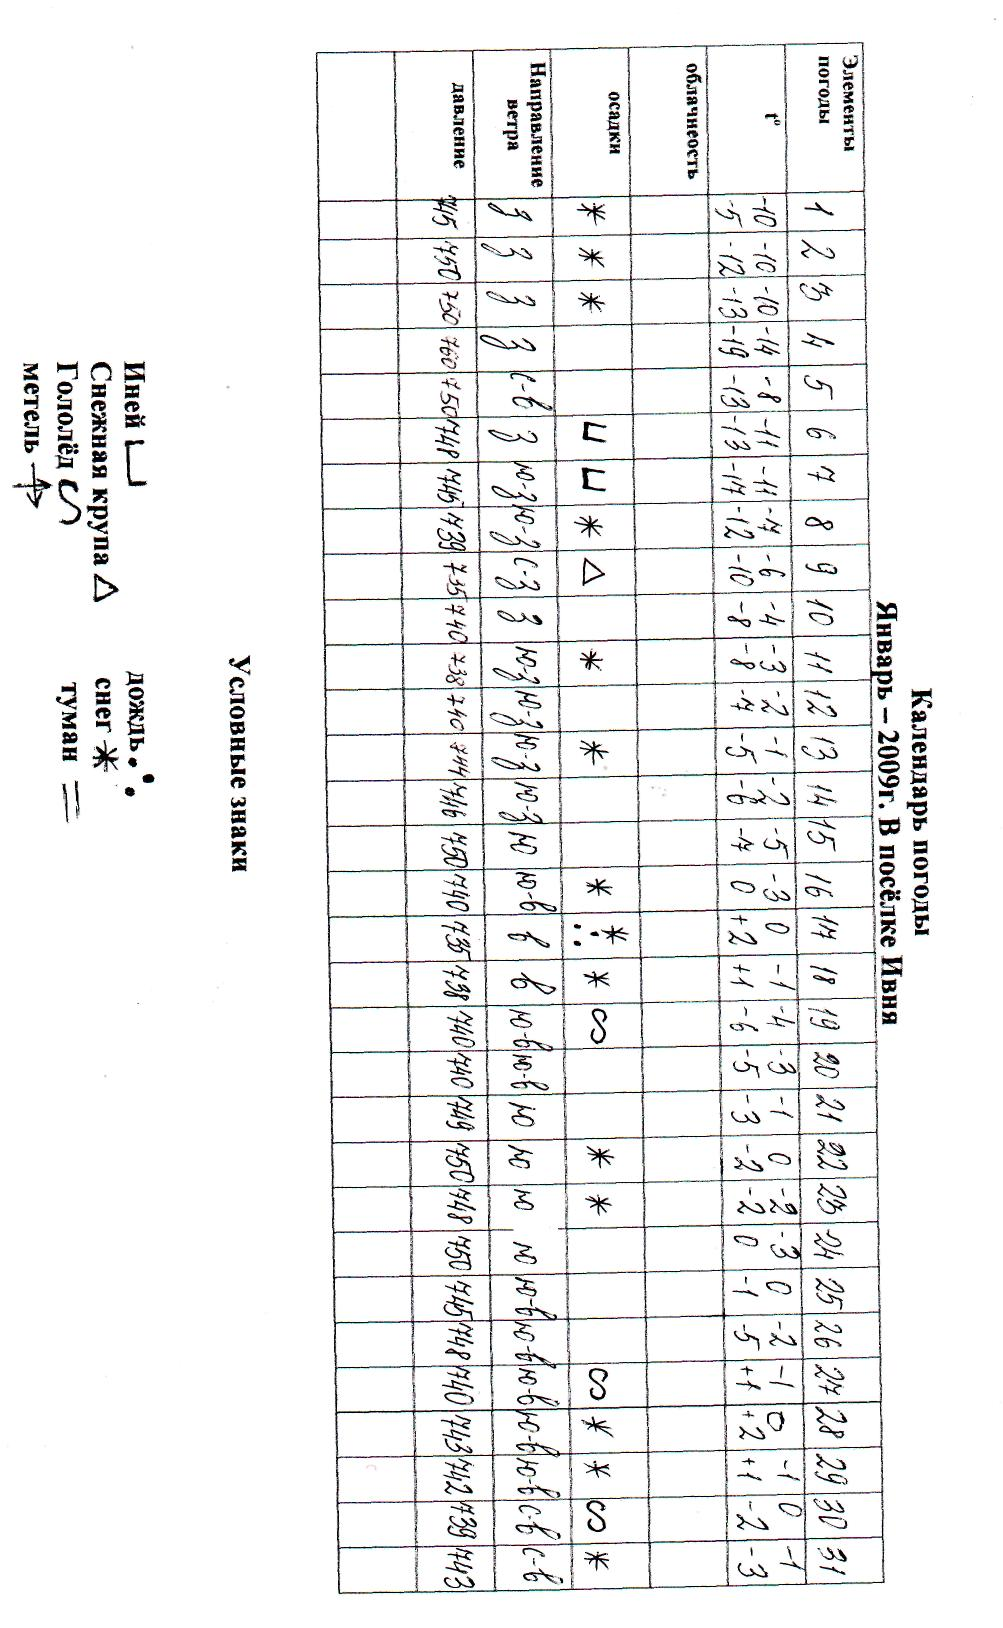 Календарь погоды
Январь – 2009г. В посёлке Ивня
Элементы погоды 1 2 3 4 5 6 7 8 9 10 11 12 13 14 15 16 17 18 19 20 21 22 23 24 25 26 27 28 29 30 31
t° -10 -10 -10 -14 -8 -11 -11 -7 -6 -4 -3 -2 -1 -2 -5 -3 0 -1 -4 -3 -1 0 -2 -3 0 -2 -1 0 -1 0 -1
-5 -12 -13 -19 -13 -13 -17 -12 -10 -8 -8 -7 -5 -6 -7 0 +2 +1 -6 -5 -3 -2 -2 0 -1 -5 +1 +2 +1 -2 -3
облачность
осадки
Направление ветра З З З З С-В З Ю-З Ю-З С-З З Ю-З Ю-З Ю-З Ю-З Ю Ю-В В В Ю-В Ю-В Ю Ю Ю Ю Ю-В Ю-В Ю-В Ю-В Ю-В С-В С-В
давление 745 750 750 760 750 748 745 739 735 740 738 740 744 746 750 740 735 738 740 740 749 750 748 750 745 748 740 743 742 739 743
Условные знаки
Иней
дождь
Снежная крупа
снег
Гололёд
туман
метель